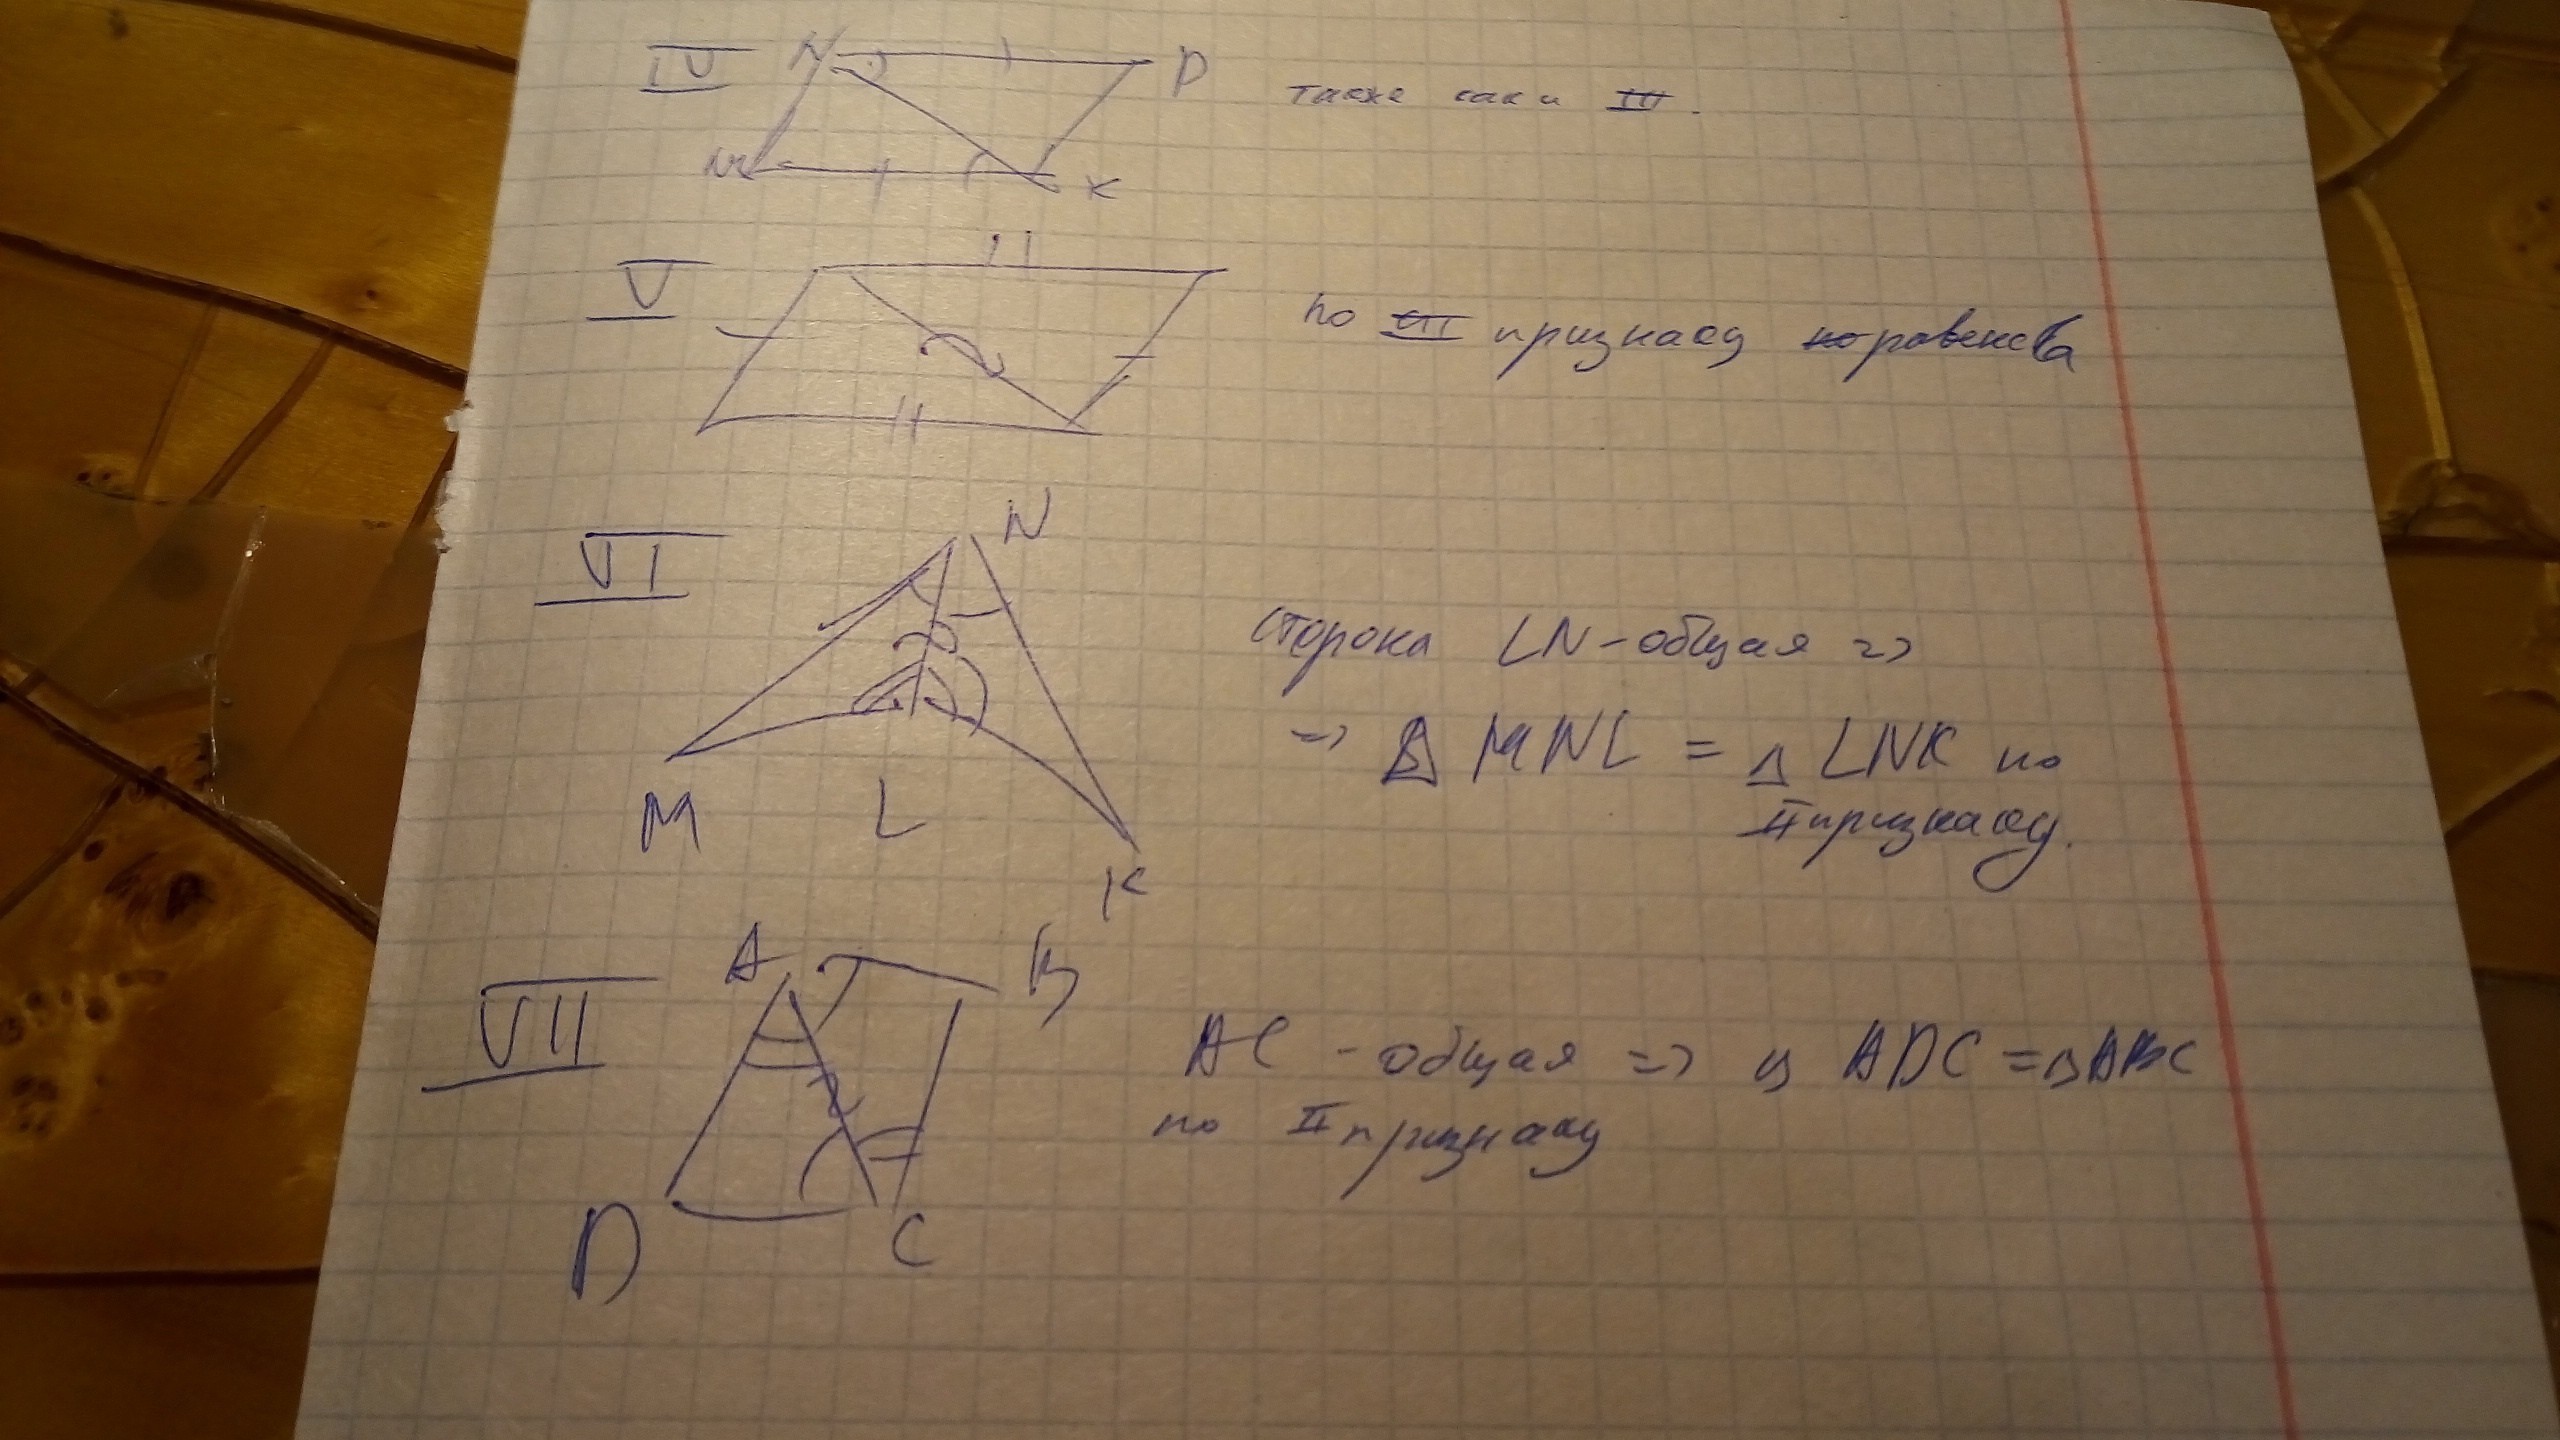 IV N P также как и III.
M K
V по III признаку равенства
VI N
сторона LN - общая =>
=> Δ MNL = Δ LNK по
II признаку.
M L
K
VII A B
AC - общая => Δ ADC = Δ ABC
по II признаку
D C